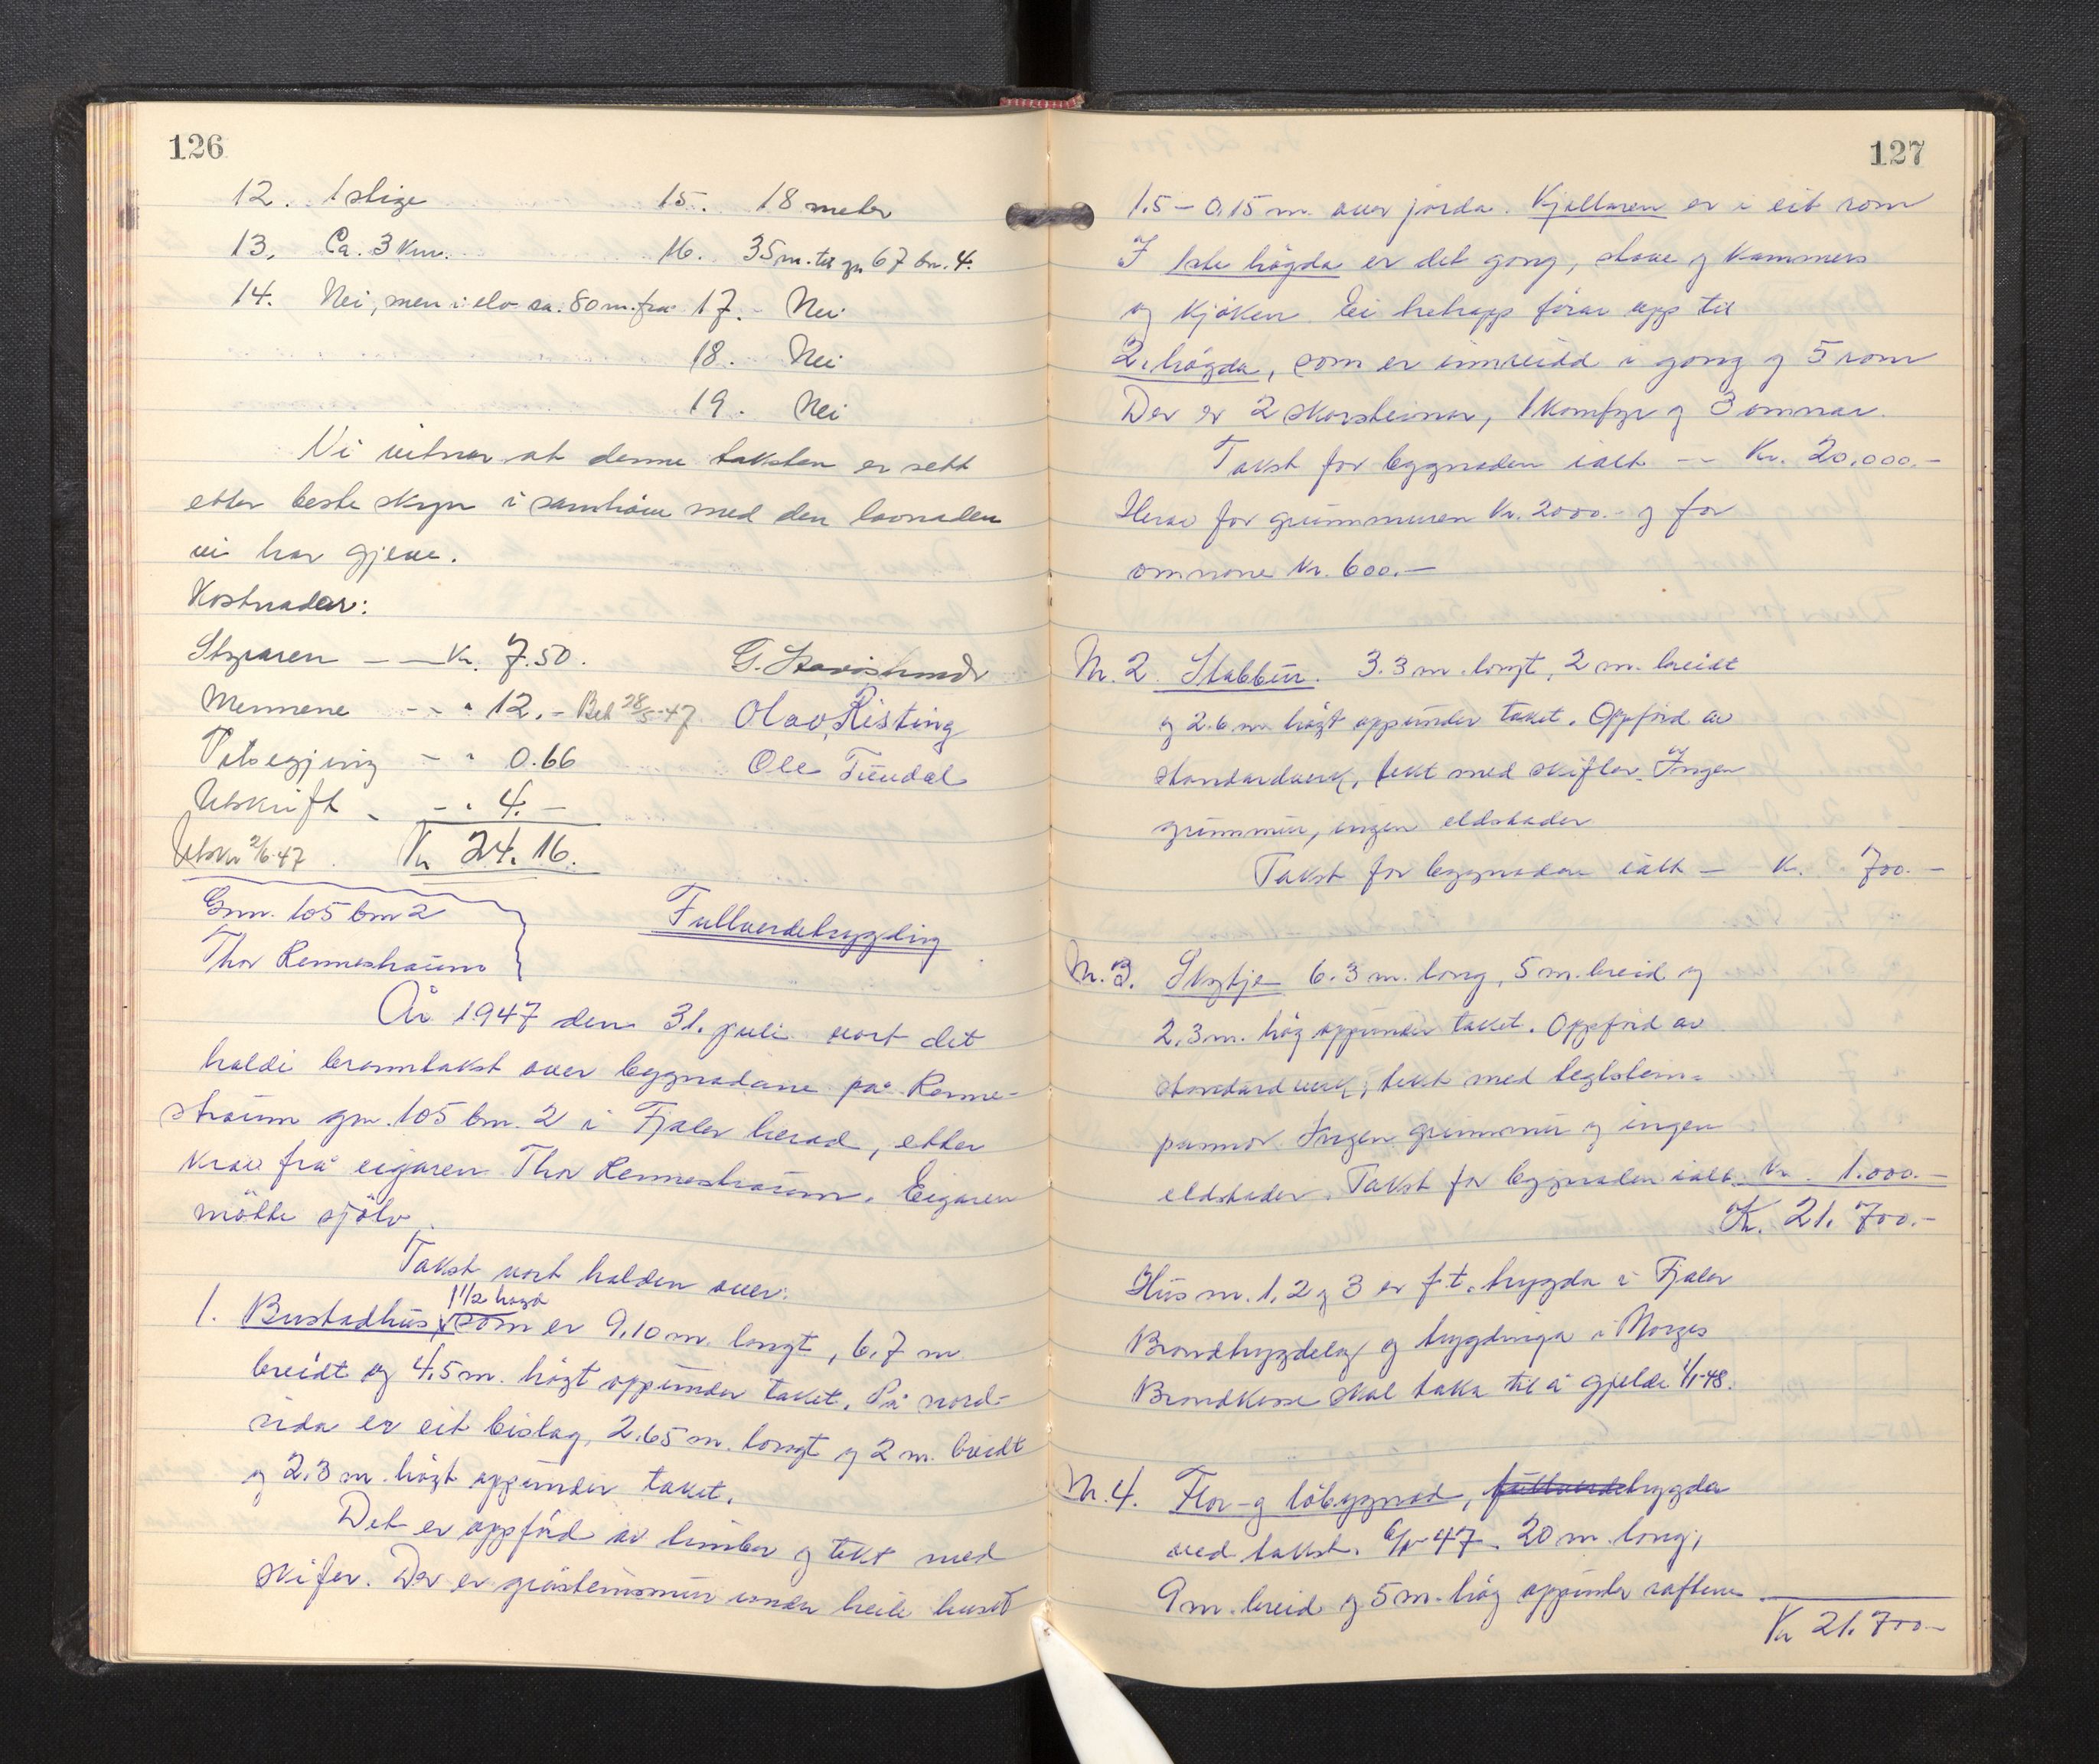 126
12. 1 stige
13. Ca. 3 km.
14. Nei, men i elv ca. 80 m. frå
15. 18 meter
16. 35 m. til gn 67 bn. 4.
17. Nei
18. Nei
19. Nei
Vi vitnar at denne taksten er sett
etter beste skyn i samhøve med den lovnaden
vi har gjeve.
Kostnader:
Styraren - - Kr. 7.50.
Mennene - - " 12.- Bet 28/5-47
Utsegjing - " 0.66
Utskrift - - " 4.-
Utskr 2/6-47 Kr 24.16.
G.
Olav Risting
Ole Tundal
Gnr. 105 bnr 2
Thor Rennestraum
Fullverdetrygding
År 1947 den 31. juli vart det
haldi branntakst over bygnadane på Renne-
straum gnr. 105 bnr. 2 i Fjaler herad, etter
krav frå eigaren Thor Rennestraum. Eigaren
møtte sjølv.
Takst vart halden over:
1 1/2 høgd
1. Bustadhus, som er 9,10 m. langt, 6,7 m
breidt og 4,5 m. høgt oppunder taket. På nord-
sida er eit bislag, 2,65 m. langt og 2 m. breidt
og 2,3 m. høgt oppunder taket.
Det er oppförd av timber og tekt med
skifer. Der er gråsteinsmur under heile huset
127
1,5 - 0,15 m. over jorda. Kjellaren er i eit rom
I 1ste høgda er det gong, stove og kammers
og kjøken. Ei tretrapp fører opp til
2. høgda, som er innreidd i gong og 5 rom
Der er 2 skorsteinar, 1 komfyr og 3 omnar.
Takst for bygnaden ialt -- Kr. 20.000.-
Herav for grunnmuren Kr. 2000.- og for
omnane Kr. 600.-
Nr. 2. Stabbur. 3.3 m. langt, 2 m. breidt
og 2.6 m. høgt oppunder taket. Oppförd av
standardverk, tekt med skifer. Ingen
grunnmur, ingen eldstader
Takst for bygnaden ialt - Kr. 700.-
Nr. 3. Skytje 6.3 m. long, 5 m. breid og
2,3 m. høg oppunder taket. Oppförd av
standardverk, tekt med teglstein-
pannor. Ingen grunnmur og ingen
eldstader. Takst for bygnaden ialt. Kr. 1.000.-
Kr. 21.700.-
Hus nr. 1, 2 og 3 er f.t. trygda i Fjaler
Brandtrygdelag og trygdinga i Norges
Brandkasse skal taka til å gjelde 1/1-48.
Nr. 4. Flor- og löbygnad, fullverdetrygda
ved takst. 47. 20 m. long,
9 m. breid og 5 m. høg oppunder raftene
Kr 21.700-